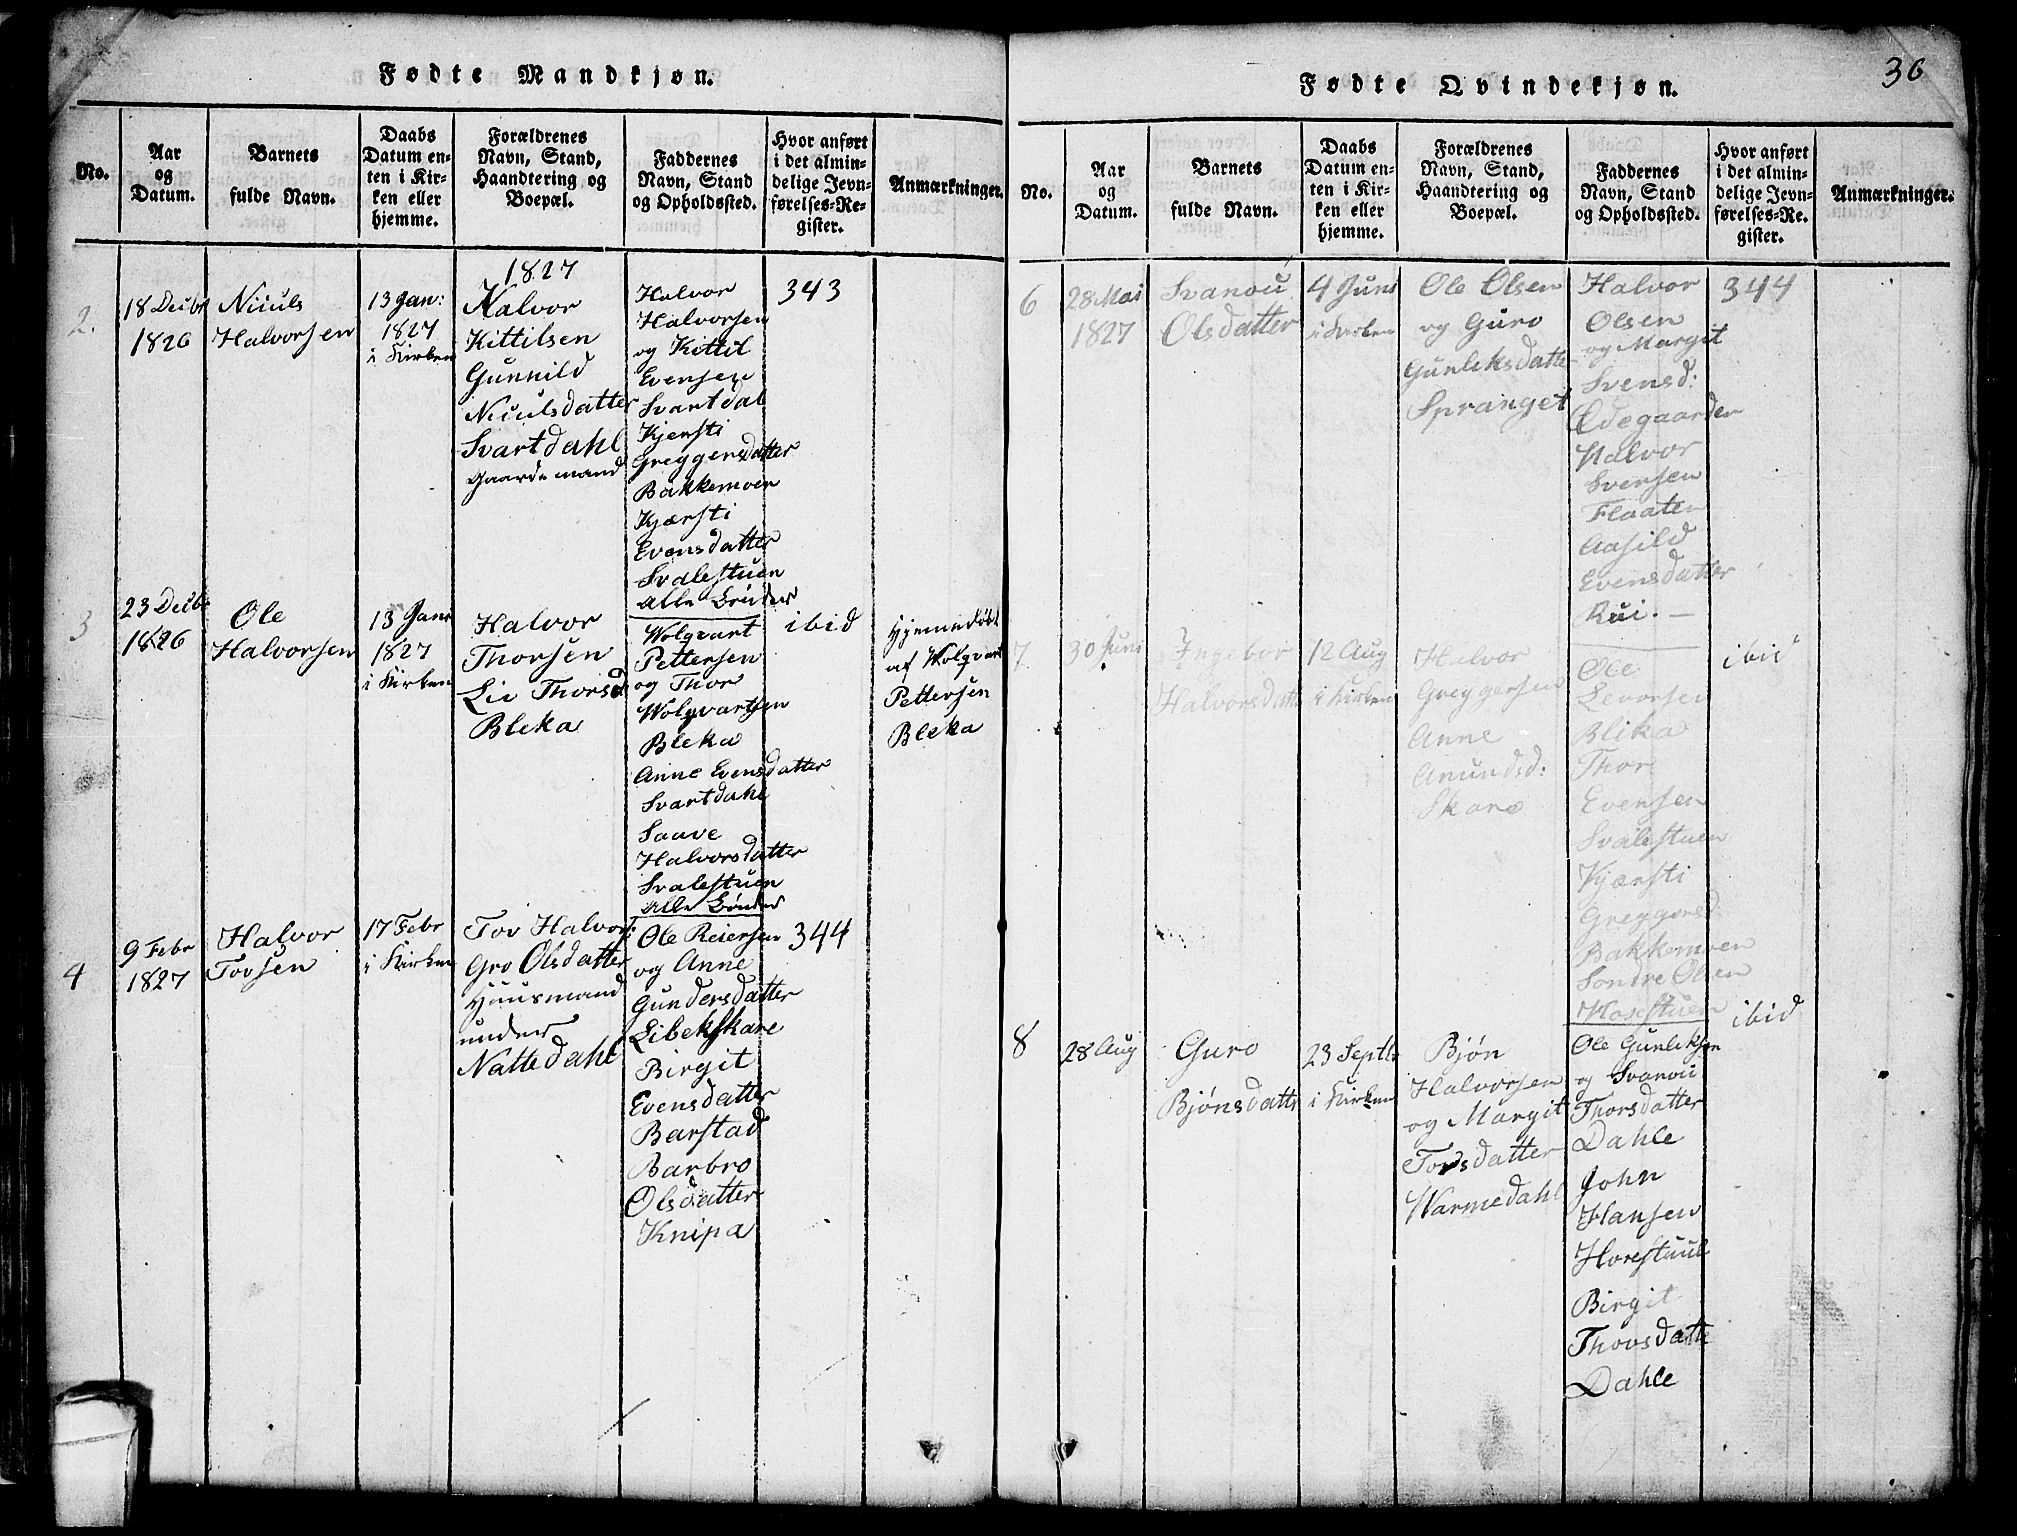 Fødte Mandkjøn.
No.
Aar
og
Datum.
Barnets
fulde Navn.
Daabs
Datum en-
ten i Kir-
ken eller
hjemme.
Forældrenes
Navn, Stand,
Haandtering og
Boepæl.
Faddernes
Navn, Stand
og Opholdssted.
Hvor anført
i det almin-
delige Jevn-
førelses-Re-
gister.
Anmærkninger.
1827
2.
18 Decbr
1826
Niculs
Halvorsen
13 Jan:
1827
i Kirken
Halvor
Kittilsen
Gunnild
Niculsdatter
Svartdahl
Gaardemand
Halvor
Halvorsen
og Kittil
Evensen
Svartdal
Kjersti
Greggersdatter
Bakkemoen
Kjærsti
Evensdatter
Svalestuen
alle Bønder
343
3
23 Decbr
1826
Ole
Halvorsen
13 Janr
1827
i Kirken
Halvor
Thorsen
Liv Thorsd
Bleka
Wolgvart
Pettersen
og Thor
Wolgvartsen
Bleka
Anne Evensdatter
Svartdahl
Saave
Halvorsdatter
Svalestuen
alle Bønder
ibid
Hjemmedøbt
af Wolgvart
Pettersen
Bleka
4
9 Febr
1827
Halvor
Tovsen
17 Febr
i Kirken
Tov Halvors:
Gro Olsdatter
Huusmand
under
Nattedahl
Ole Reiersen
og Anne
Gundersdatter
Libekskare
Birgit
Evensdatter
Barstad
Barbro
Olsdatter
Knipa
344
Fødte Qvindekjøn.
36
No.
Aar
og
Datum.
Barnets
fulde Navn.
Daabs
Datum en-
ten i Kir-
ken eller
hjemme.
Forældrenes
Navn, Stand,
Haandtering og
Boepæl.
Faddernes
Navn, Stand
og Opholdssted.
Hvor anført
i det almin-
delige Jevn-
førelses-Re-
gister.
Anmærkninger.
6
28 Mai
1827
Svanou
Olsdatter
4 Juni
i Kirken
Ole Olsen
og Guro
Gunleksdatte
Spranget
Halvor
Olsen
og Margit
Svensd:
Ødegaarden
Halvor
Svensen
Flaaten
Aasild
Evensdatter
Rui. —
344
7
30 Juni
Ingebor
Halvorsdatt
12 Aug
i Kirken
Halvor
Greggersen
Anne
Anundsd:
Skare
Ole
Levorsen
Blika
Thor
Evensen
Svalestuen
Kjærsti
Greggersd
Bakkemoen
Sondre Olsen
Hosestuen
ibid
8
28 Aug
Guro
Bjønsdatte
23 Septb
i Kirken
Bjøn
Halvorsen
og Margit
Tovsdatter
Warmedahl
Ole Gunleksen
og Svanou
Thorsdatter
Dahle
John
Hansen
Horestuul
Birgit
Thovsdatte
Dahle
ibid